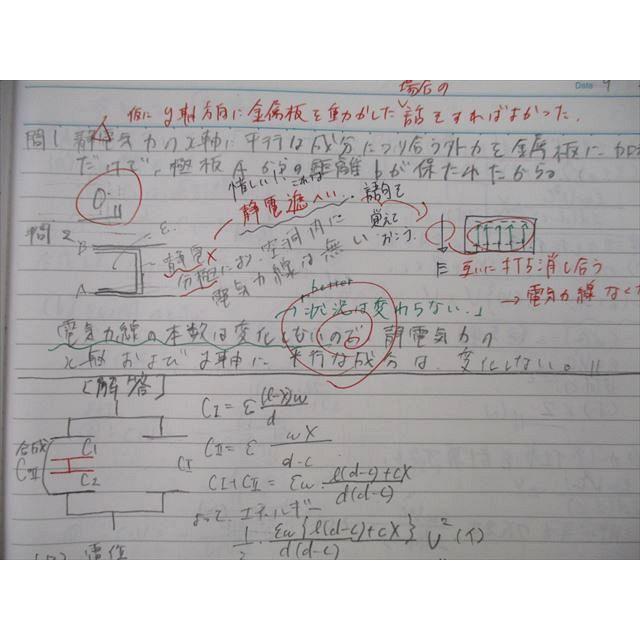 場合の
Date
仮にy軸方向に金属板を動かした話をすればよかった.
問1 静電気力のx軸に平行な成分につり合う外力を金属板に加
だけで、極板Aからの距離bが保たれたから。
惜しい!! これは
静電遮へい… 語句で
覚えて
おこう.
問2
B
ε.
静電×
分極により、空洞内に
電気力線は無い
A
E
互いに打ち消し合う
→電気力線なく
better
「状況は変わらない.」
電気力線の本数は変化しないので 静電気力の
x軸およびy軸に平行な成分は、変化しない。
[解答]
合成
CⅡ
C1
C2
CⅠ
CⅠ = ε (l-x)w / d
CⅡ = ε wX / d-c
CⅠ+CⅡ = εw l(d-c)+cX / d(d-c)
よって、エネルギー
1/2 · εw{l(d-c)+cX} / d(d-c) V² (イ)